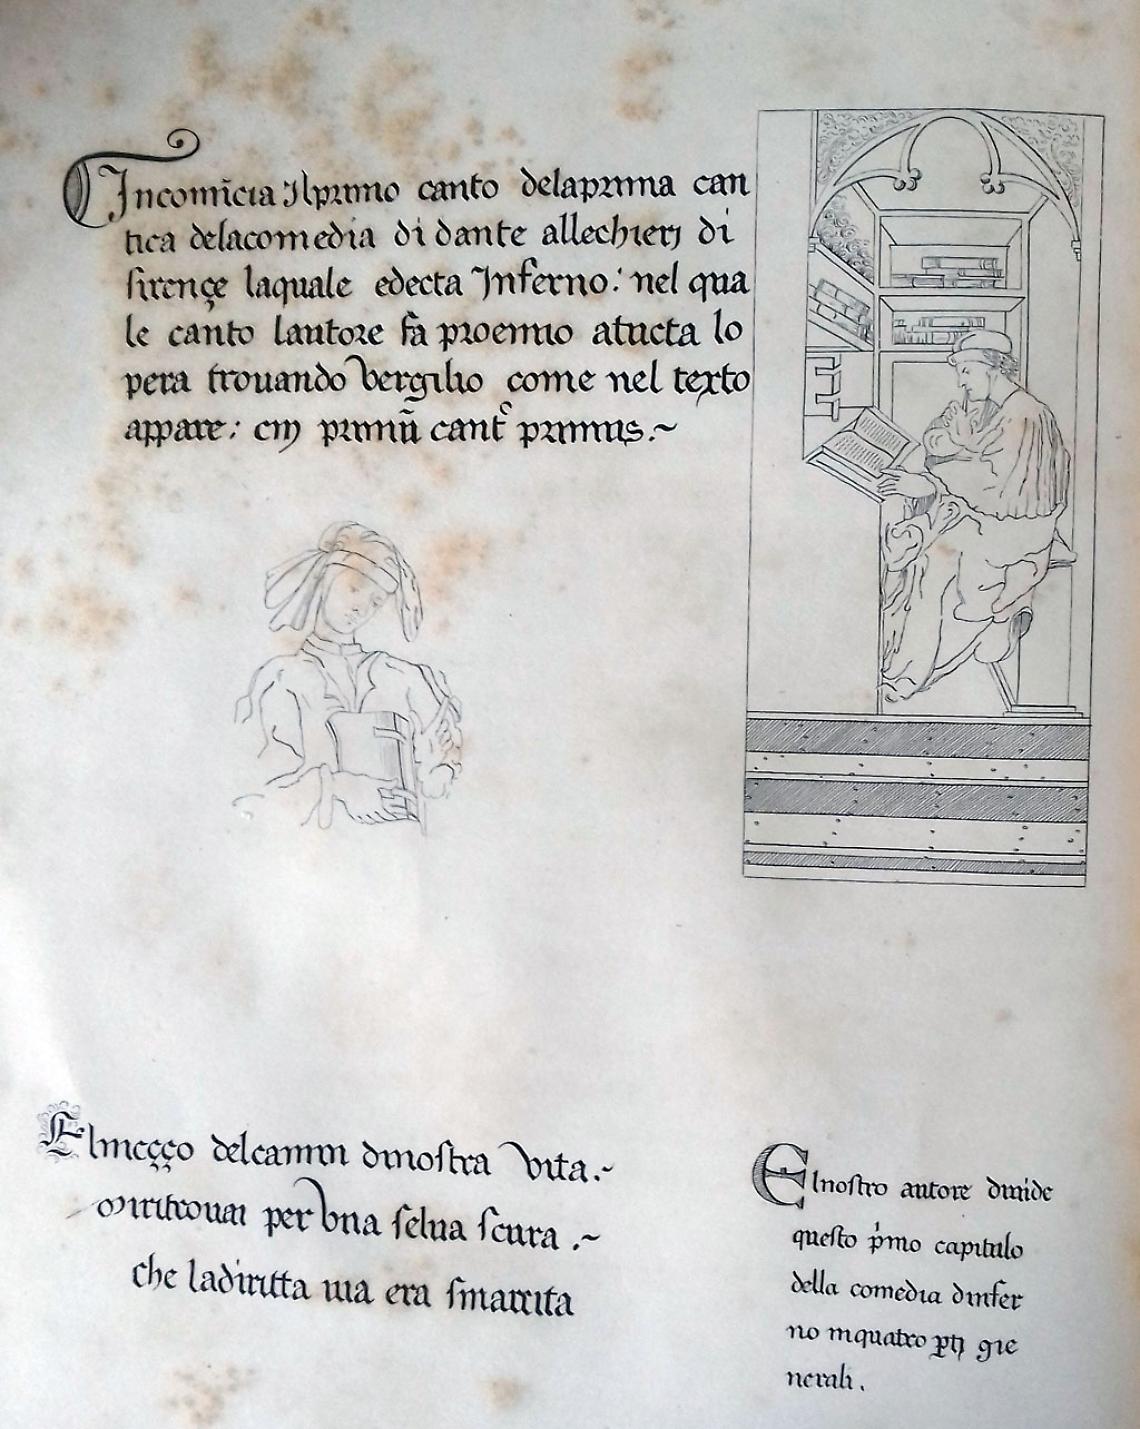 Incomīcia Ilprimo canto delaprima can
tica delacomedia di dante allechierj di
firençe laquale edecta Inferno: nel qua
le canto lautore fa proemio atucta lo
pera trouando Vergilio come nel texto
appare: primū primus.~
Elmeççо delcamin dinostra Vita.~
miritrouai per Vna selua scura .~
che ladiritta uia era smarrita
Elnostro autore diuide
questo p̍mo capitulo
della comedia dinfer
no inquatro ꝑtj gie
nerali.